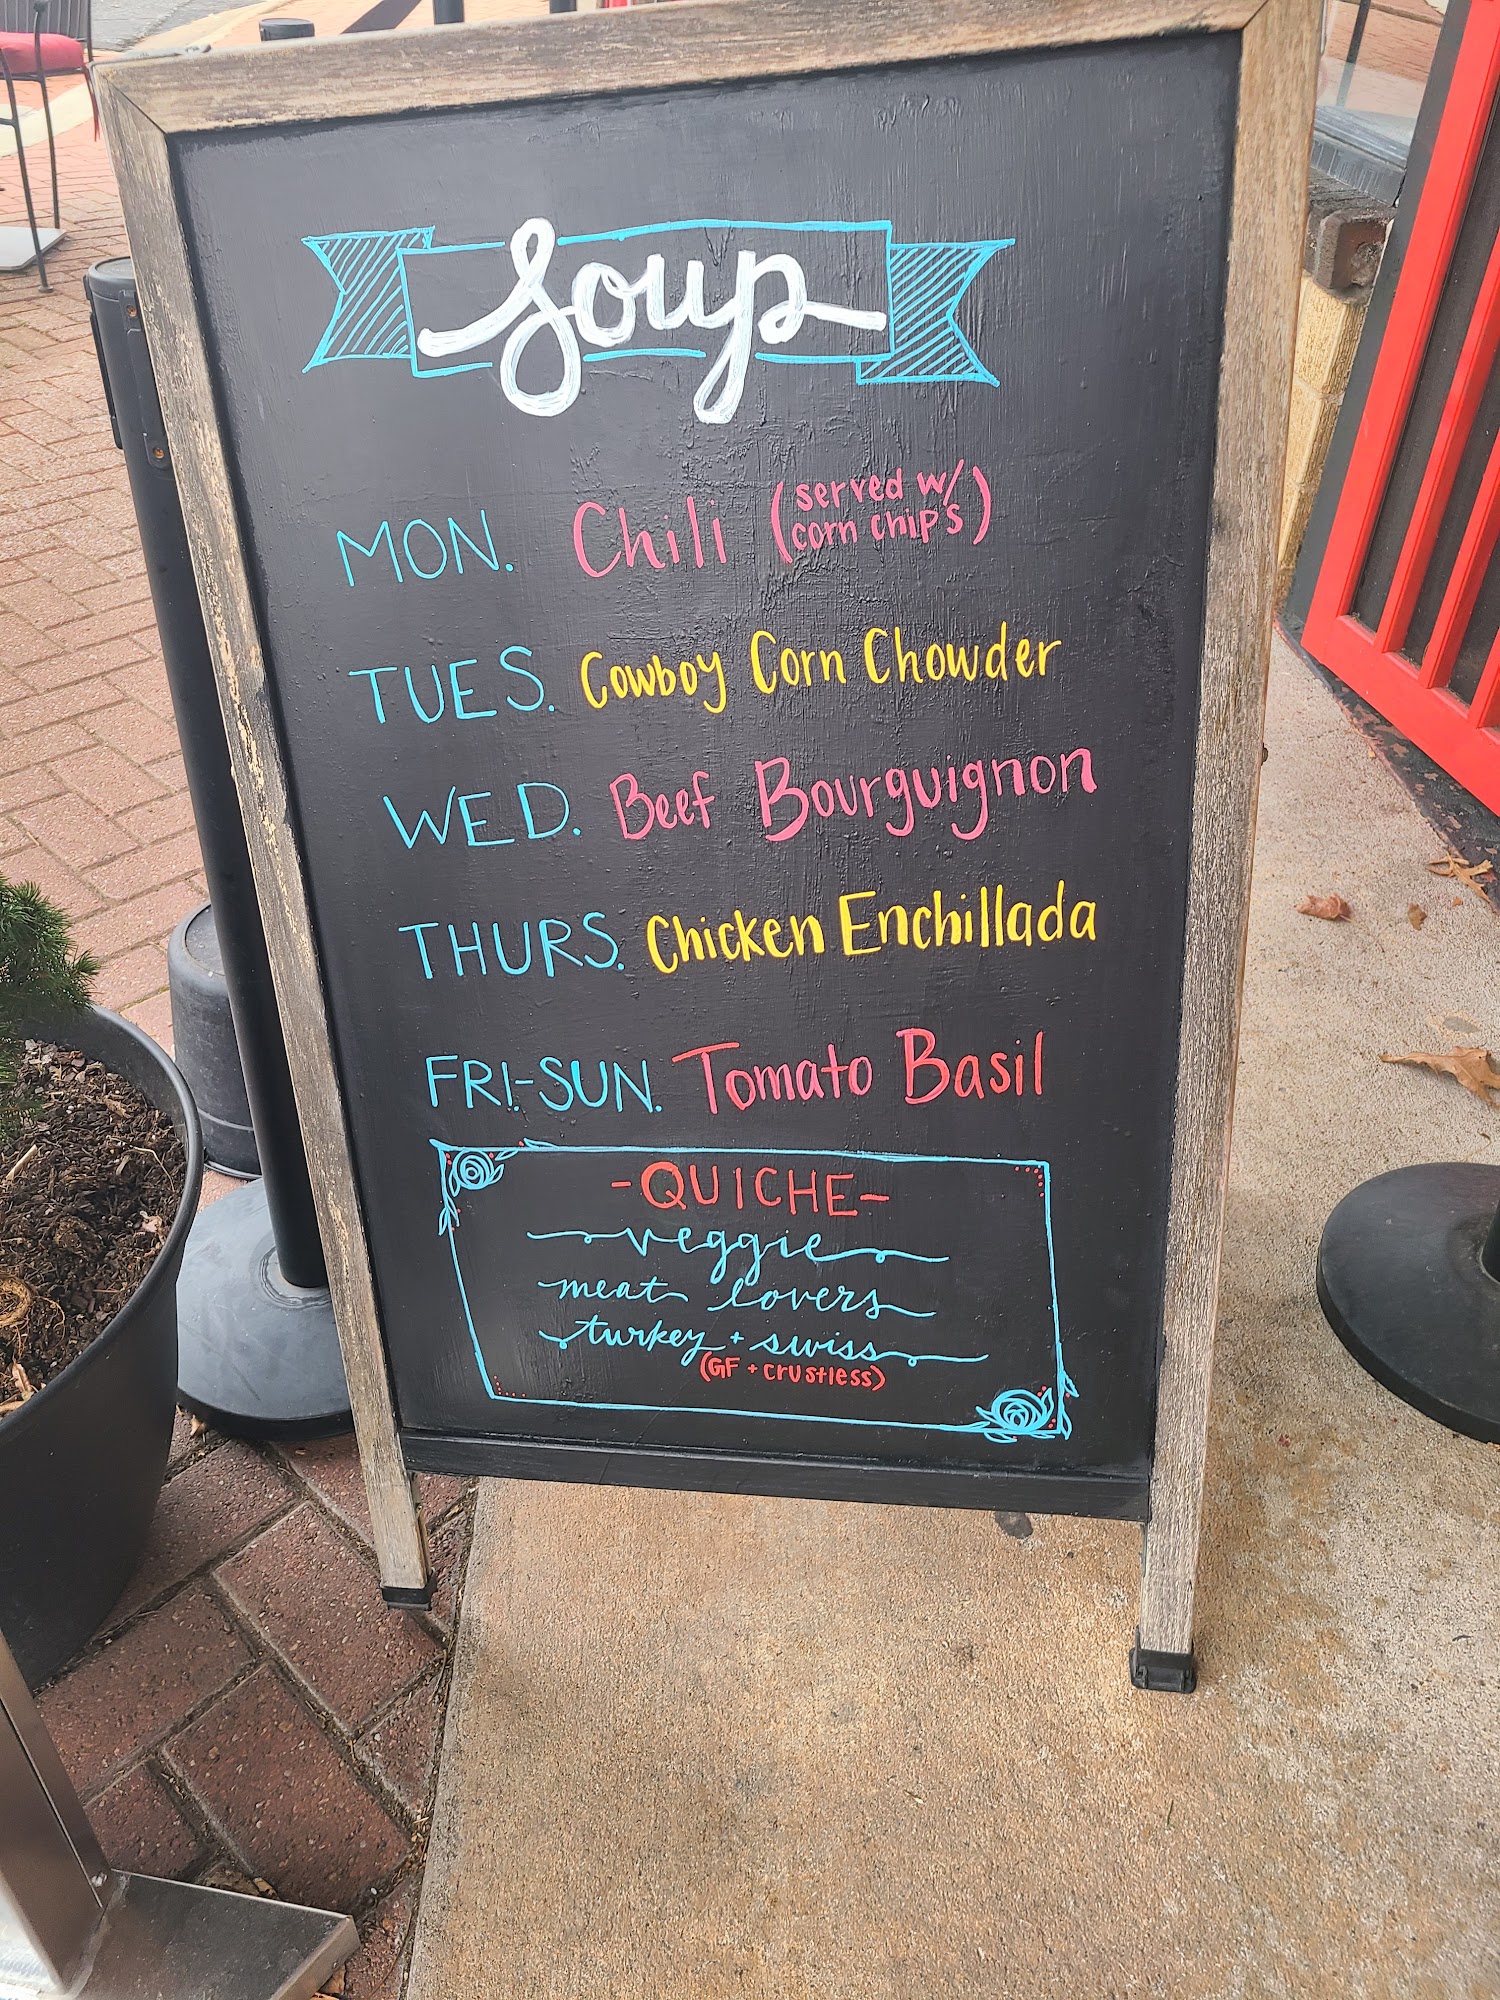 Soup
MON. Chili (served w/
corn chips)
TUES. Cowboy Corn Chowder
WED. Beef Bourguignon
THURS. Chicken Enchillada
FRI-SUN. Tomato Basil
-QUICHE-
veggie
meat lovers
turkey + swiss
(GF + crustless)